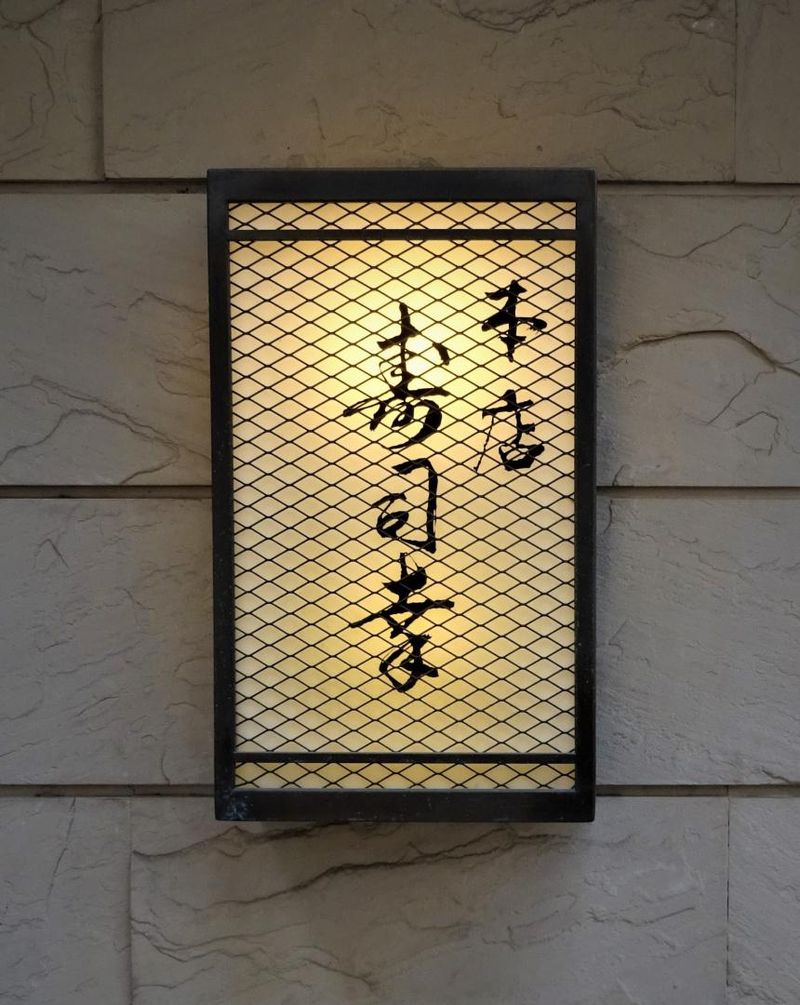 本店
寿司幸